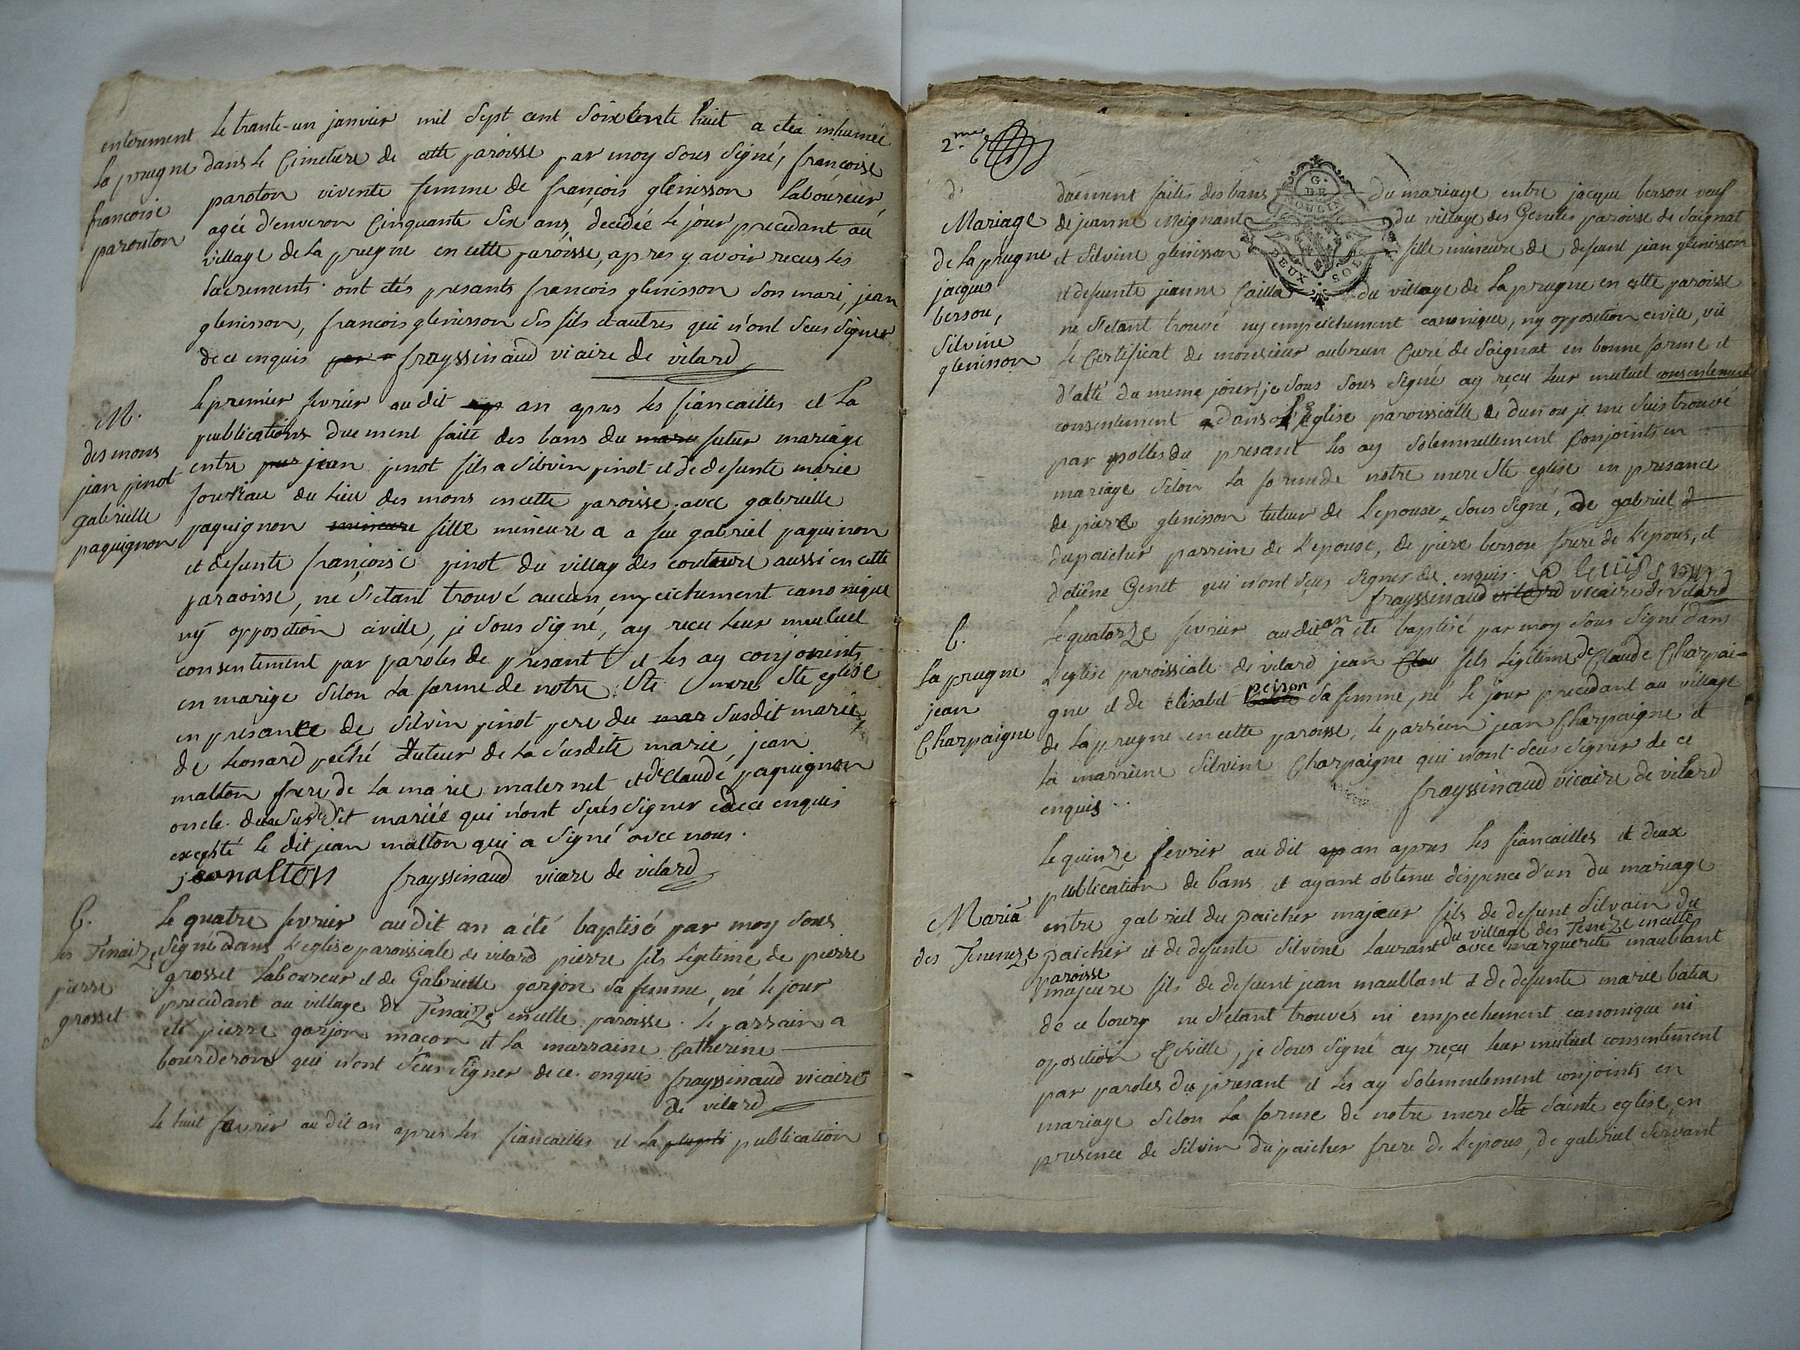 enterement
la prugne
françoise
parouton
le trante-un janvier mil sept cent soixtente huit a etee inhumée
dans le cimetiere de cette paroisse par moy sous signé, françoise
paroton vivente femme de françois glenisson laboureur,
agée d'enveron cinquante six ans, decedée le jour precedant au
village de la prugne en cette paroisse, apres y avoir recus les
sacrements. ont etés presants françois glenisson son mari, jean
glenisson, françois glenisson ses fils et autres qui n'ont seus signer
de ce enquis frayssinaud vicaire de vilard
M.
des mons
jean pinot
gabrielle
paquignon
le premier fevrier au dit an apres les fiancailles et la
publications duement faite des bans du futur mariage
entre jean pinot fils a silvin pinot et de defunte marie
du lieu des mons en cette paroisse avec gabrielle
paquignon mineure fille mineure a a feu gabriel paquinon
et defunte françoise pinot du villag des couture aussi en cette
paraoisse, ne s'etant trouvé aucun empeichement canonique
ny opposition civille, je sous signé, ay recu leur mutuel
consentement par paroles de presant et les ay conjoints
en marige selon la forme de notre Ste mere Ste eglise
en presance de silvin pinot pere du mar susdit marié,
de leonard péché tuteur de la susdite marie, jean
malton frere de la marie maternel et de claude paquignon
oncle du susdit mariéé qui n'ont seus signer de ce enquis
excepté le dit jean malton qui a signé avec nous.
jeanalton frayssinaud vicare de vilard
b.
les Tenaize
pierre
grosset
le quatre fevrier au dit an a eté baptisé par moy sous
signé dans l'eglise paroissiale de vilard pierre fils legitime de pierre
grosset laboureur et de Gabrielle gorjon sa femme, né le jour
precedant au village de Tenaize en cette paroisse. le parrain a
eté pierre gorjon maçon et la marraine Catherine
bourderon qui n'ont seus signer de ce enquis frayssinaud vicaire
de vilard
le huit fevrier au dit an apres les fiancailles et la publication
2.me
G. DE MOULINS
DEUX SOLS
Mariage
de la prugne
jacques
bersou,
silvine
glenisson
duement faites des bans du mariage entre jacque bersou veuf
de jeanne Meignant du village des Genetes paroisse de soignat
et silvine glenisson fille mineure de defunt jean glenisson
et defunte jeanne Caillau du village de la prugne en cette paroisse
ne s'etant trouvé ny empeichement canonique, ny opposition civille, vu
le Certificat de monsieur aubrun Curé de soignat en bonne forme et
d'atté du meme jour, je sous signé ay reçu leur mutuel consentement
consentement dans l'eglise paroissialle
par polles du presant les ay solemnellement conjoints en
mariage selon la forme de notre mere Ste eglise en presance
de pierre glenisson tuteur de l'epouse sous signé, de gabriel d
dupaicher parrein de l'epouse, de piere bersou frere de l'epous, et
d'etiene Genet qui n'ont seus signer de enquis.
frayssinaud vilard vicaire de vilard
b.
la prugne
jean
Charpaigne
le quatorze fevrier audit an a ete baptisé par moy sous signé dans
l'eglise paroissiale de vilard jean fils legitime de Claude Charpai-
gne et de elisabet peison sa femme, né le jour precedant au village
de la prugne en cette paroisse, le parrien jean Charpaigne et
la marriene silvine Charpaigne qui n'ont seus signer de ce
enquis.. frayssinaud vicaire de vilard
Maria
des Tenenze
le quinze fevrier au dit an apres les fiancailles et deux
publication de bans et ayant obtenu dispence d'un du mariage
entre gabriel du paicher majeur fils de defunt silvain du
paicher et de defunte silvine laurant du village des Teneze en cette
paroisse avec marguerite maublant
majeure fils de defunt jean maublant et de defunte marie batia
de ce bourg ne s'etant trouvés ni empechement canonique ni
oposition civille, je sous signé ay reçu leur mutuel consentement
par paroles du presant et les ay solemnelement conjoints en
mariage selon la forme de notre mere Ste sainte eglise, en
presence de silvin dupaicher frere de l'epous, de gabriel servant